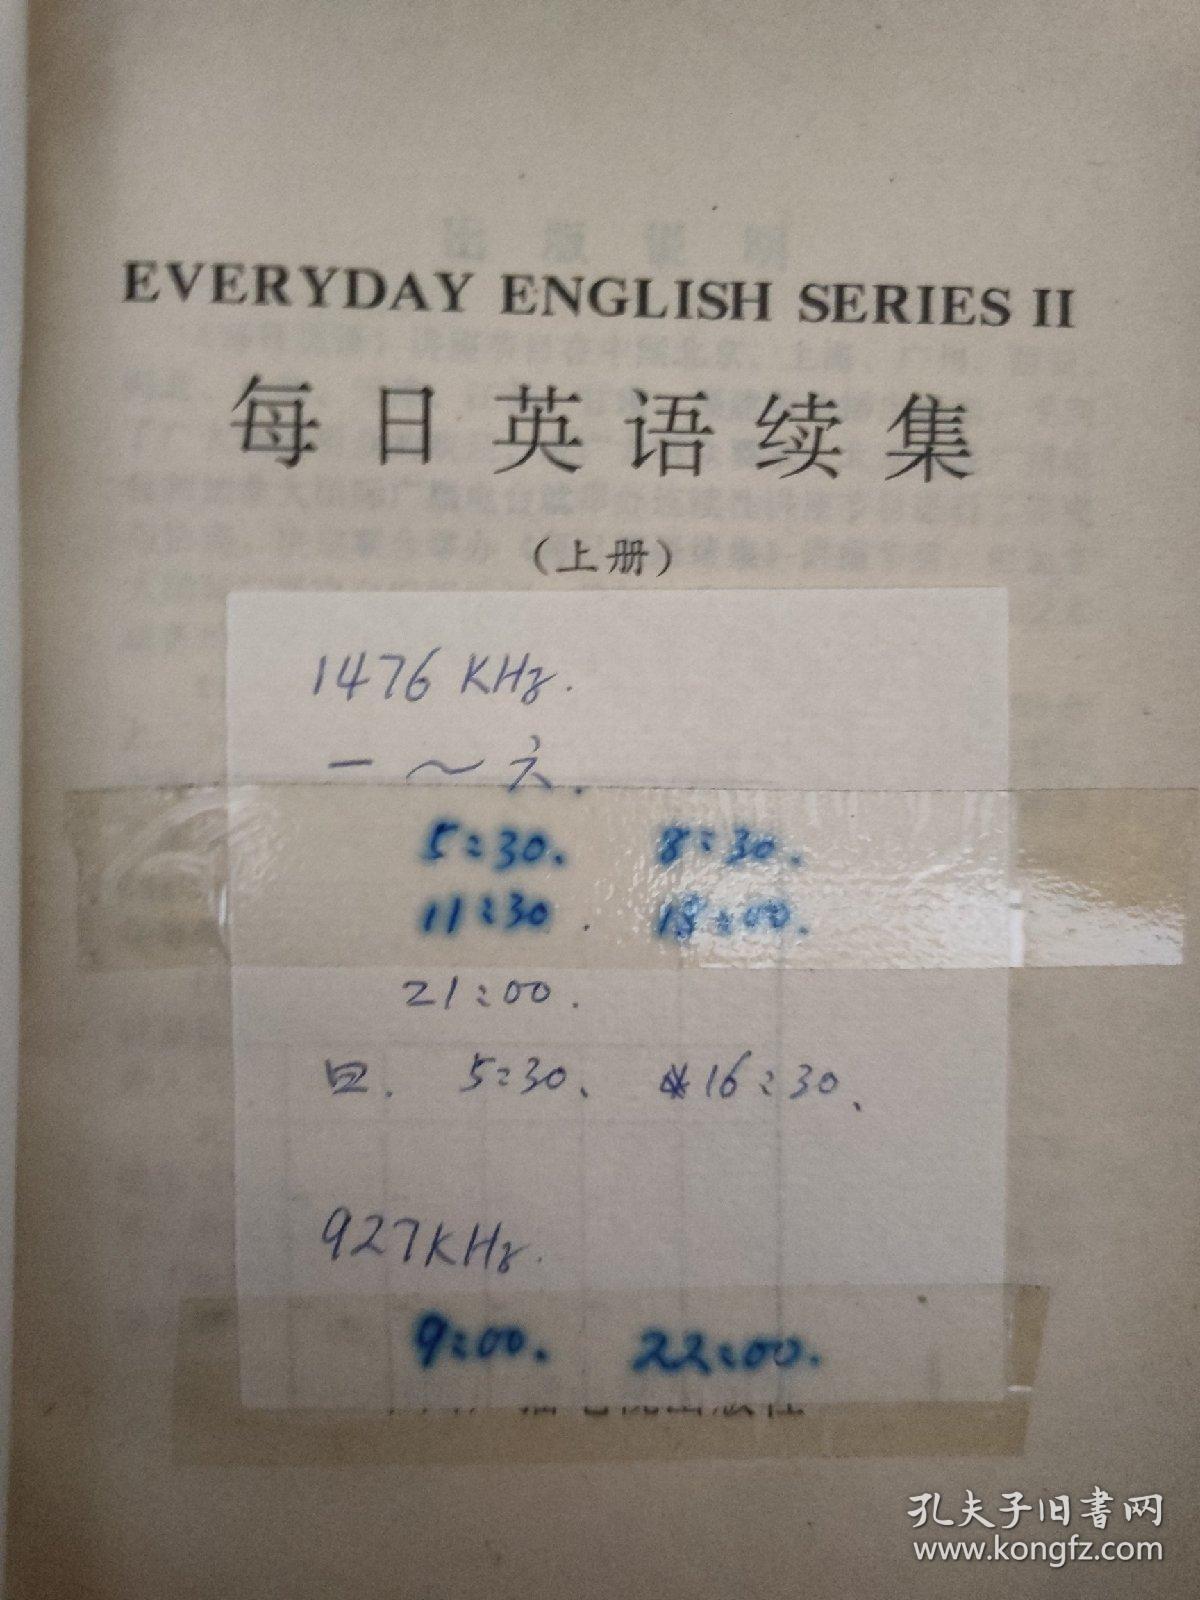 EVERYDAY ENGLISH SERIES II
每日英语续集
(上册)
1476 KHz.
一～六.
5:30. 8:30.
11:30. 18:00.
21:00.
四. 5:30、 *16:30、
927KHz.
9:00. 22:00.
孔夫子旧书网
www.kongfz.com